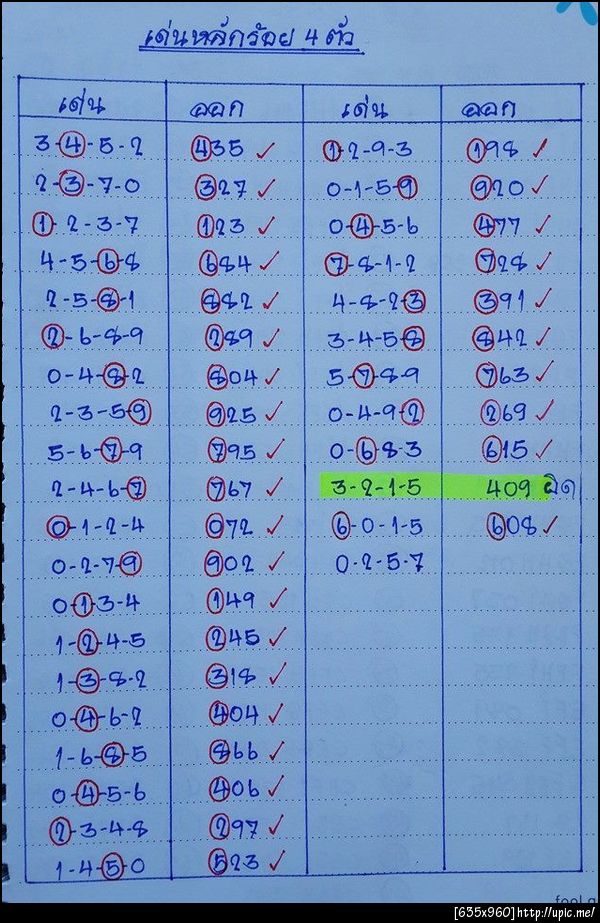 เด่นหลักร้อย 4 ตัว
เด่น ออก เด่น ออก
3-4-5-2 435 ✓ 1-2-9-3 198 ✓
2-3-7-0 327 ✓ 0-1-5-9 920 ✓
1-2-3-7 123 ✓ 0-4-5-6 477 ✓
4-5-6-8 684 ✓ 7-8-1-2 728 ✓
2-5-8-1 882 ✓ 4-8-2-3 391 ✓
2-6-8-9 289 ✓ 3-4-5-8 842 ✓
0-4-8-2 804 ✓ 5-7-8-9 763 ✓
2-3-5-9 925 ✓ 0-4-9-2 269 ✓
5-6-7-9 795 ✓ 0-6-8-3 615 ✓
2-4-6-7 767 ✓ 3-2-1-5 409 ผิด
0-1-2-4 072 ✓ 6-0-1-5 608 ✓
0-2-7-9 902 ✓ 0-2-5-7
0-1-3-4 149 ✓
1-2-4-5 245 ✓
1-3-8-2 318 ✓
0-4-6-2 404 ✓
1-6-8-5 866 ✓
0-4-5-6 406 ✓
2-3-4-8 297 ✓
1-4-5-0 523 ✓
[635x960]http://upic.me/